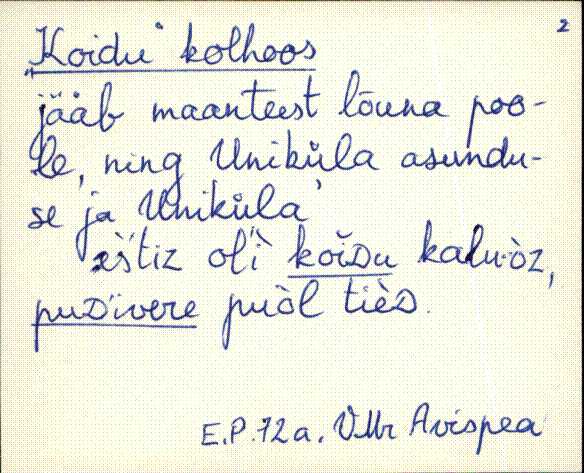 2
"Koidu" kolhoos
jääb maanteest lõuna poo-
le, ning Uniküla asundu-
se ja Uniküla
èśtiz oĺi koĭᴅu kalu·òz,
puᴅivere puòl tièᴅ.
E.P.72a. VMr Avispea